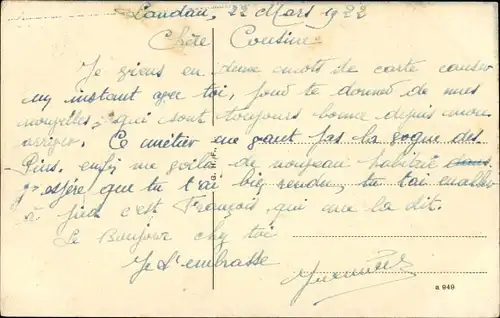 Landau, 22 Mars 1922
Chère Cousine
Je viens en deux mots de carte causer
un instant avec toi, pour te donner de mes
nouvelles qui sont toujours bonne depuis mon
arriver. Ce métier ne vaut pas la gogne des
Pins, enfin me voilà de nouveau habitué dans
j'espère que tu t'ai bien rendu, tu t'ai
à pied c'est François qui me la dit.
Le Bonjour chez toi
Je t'embrasse
a 949